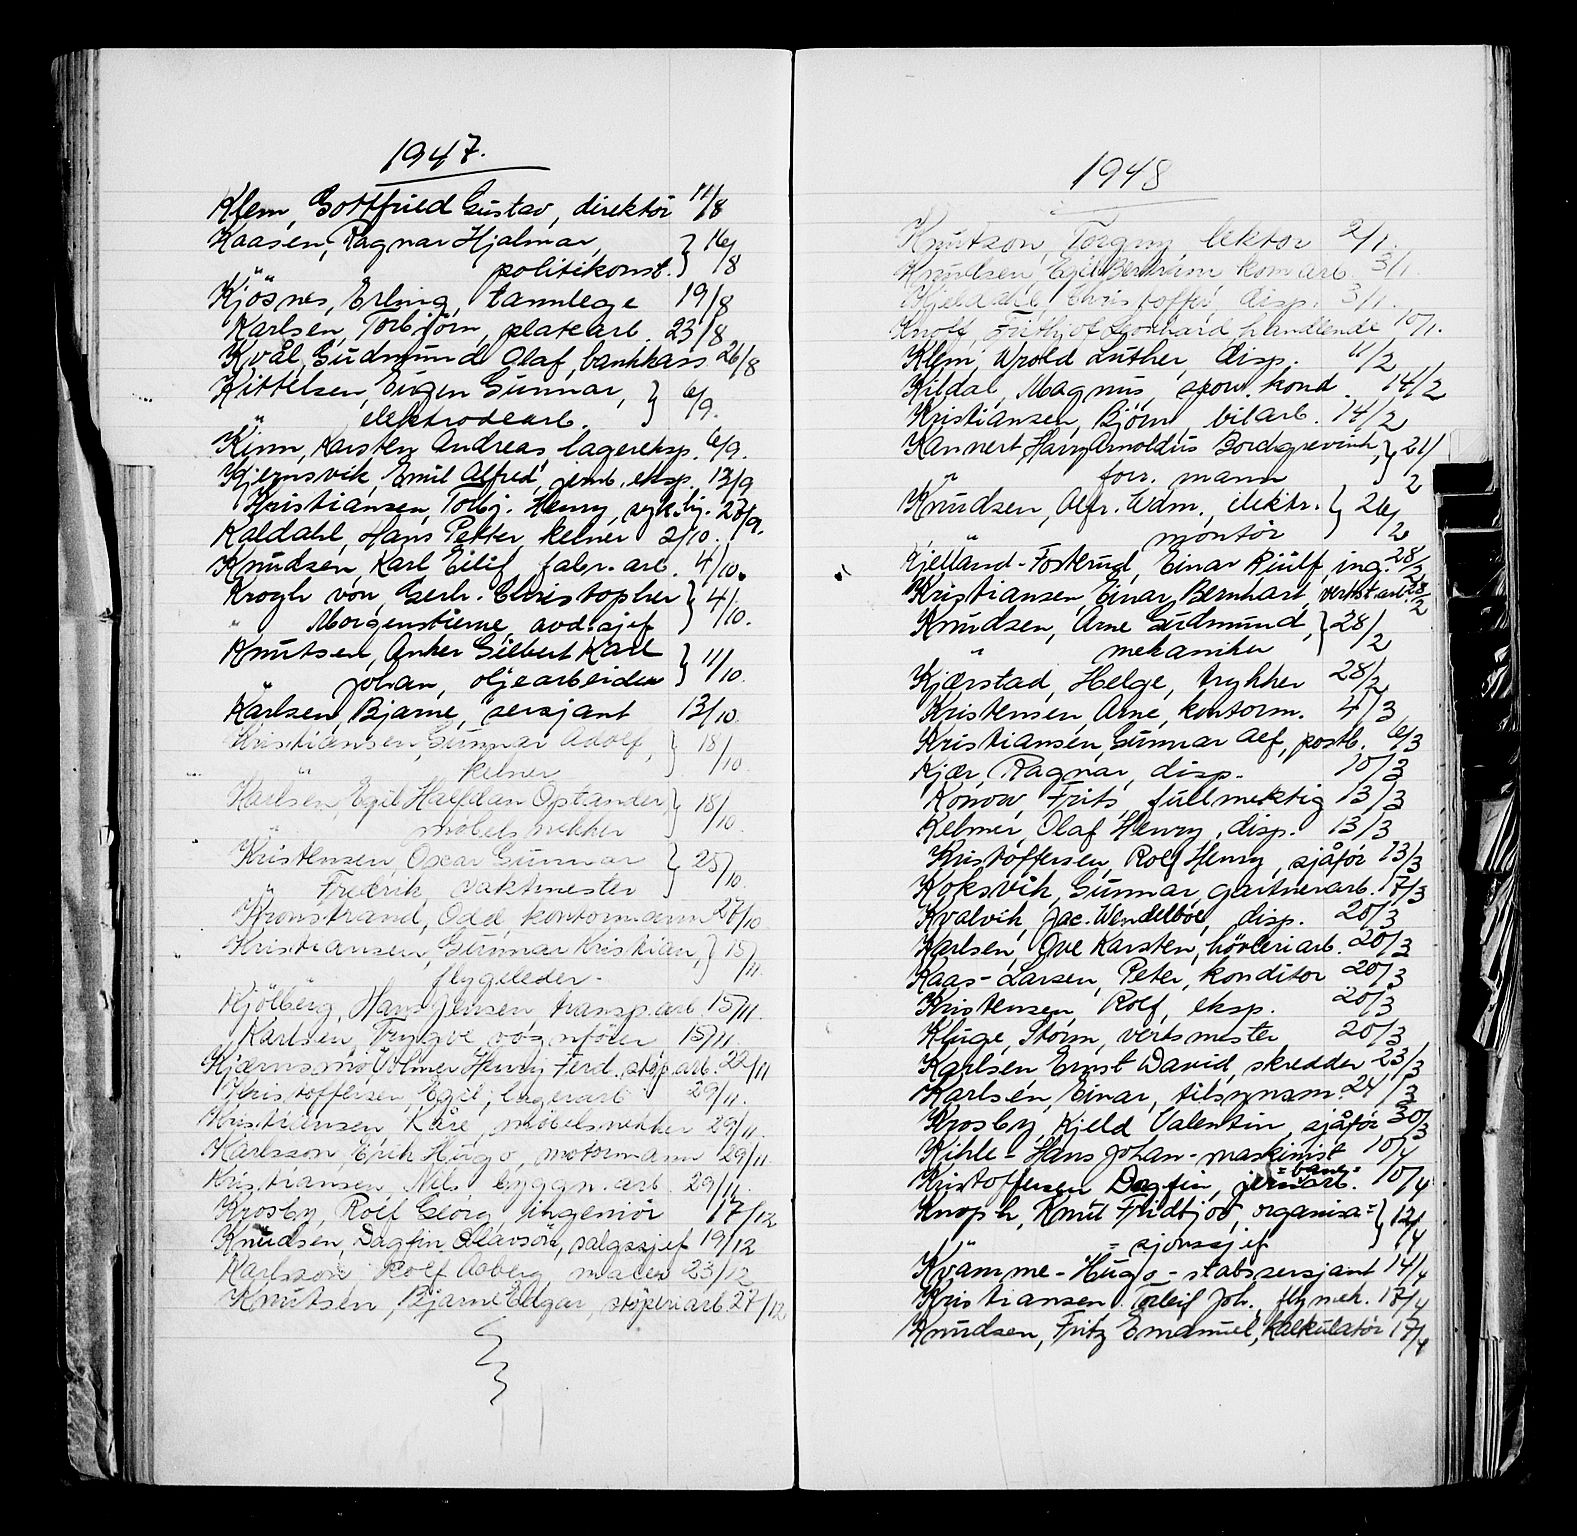 1947.
Klem, Gottfried Gustav, direktör 11/8
Kaasen, Ragnar Hjalmar, } 16/8
politikonst.
Kjösnes, Erling, tannlege 19/8
Karlsen, Torbjörn, platearb. 23/8
Kvål, Gudmund Olaf, bankkass 26/8
Kittelsen, Eugen Gunnar, } 6/9.
elektrodearb.
Kinn, Karsten Andreas, lagereksp. 6/9.
Kjernsvik, Emil Alfred, jernb. eksp. 13/9
Kristiansen, Torbj. Henry, 27/9.
Kaldahl, Hans Petter, kelner 2/10.
Knudsen, Karl Eilif, fabr. arb. 4/10.
Krogh von, Gerh. Christopher } 4/10.
" Morgenstierne, avd. sjef
Knutsen, Anker Gilbert Karl } 11/10.
" Johan, oljearbeider
Karlsen, Bjarne, sersjant 13/10.
Kristiansen, Gunnar Adolf, } 18/10.
" kelner
Karlsen, Egil Halfdan Optander, } 18/10.
" möbelsnekker
Kristensen, Oscar Gunnar } 25/10.
" Fredrik, vaktmester
Kronstrand, Odd, kontormann 27/10
Kristiansen, Gunnar Kristian, } 15/11.
" flygeleder.
Kjölberg, Hans Jensen transp. arb. 15/11.
Karlsen, Trygve, vognförer 15/11.
Kjærnsmo, Volmer Henry Ferd. stöp. arb. 22/11
Kristoffersen, Egil, lagerarb 29/11.
Kristiansen, Kåre, möbelsnekker 29/11.
Karlsson, Erik Hugo, motormann 29/11.
Kristiansen, Nils byggn. arb. 29/11.
Krosby, Rolf Georg, ingeniör 17/12
Knudsen, Dagfin Olavsön, salgssjef 19/12
Karlsson, Rolf Åberg, maler 23/12
Knutsen, Bjarne Edgar, stöperiarb. 27/12
1948
Knutson, Torgny lektor 2/1.
Knudsen, Egil Bertram kom arb. 3/1
Kjeldahl, Christoffer, disp. 3/1.
Knoff, Frithjof Leonhard, handlende 10/1.
Klem, Wrold Luther, disp. 11/2
Kildal, Magnus, sporv. kond. 14/2
Kristiansen, Björn, bilarb. 14/2
Kannert Harry Arnoldus Bordgrevink, } 21/2
" forr. mann
Knudsen, Alfr. Wdm., elektr. } 26/2
" montör
Kjelland-Foskrud, Einar Riulf, ing. 28/2
Kristiansen, Einar Bernhart, verkst. arb. 28/2
Knudsen, Arne Gudmund, } 28/2
" mekaniker
Kjærstad, Helge, trykker 28/2
Kristensen, Arne, kontorm. 4/3
Kristiansen, Gunnar Alf, postb. 6/3
Kjær, Ragnar, disp. 10/3
Konow, Frits, fullmektig 13/3
Kelmer, Olaf Henry, disp. 13/3
Kristoffersen, Rolf Henry, sjåför 13/3
Koksvik, Gunnar, gartnerarb. 17/3
Kvalvik, Jac. Wendelboe, disp. 20/3
Karlsen, Ove Karsten, hövleriarb. 20/3
Kaas-Larsen, Peter, konditor 20/3
Kristensen, Rolf, eksp. 20/3
Kluge, Storm, vertsmester 20/3
Karlsen Ernst David, skredder 23/3
Karlsen, Einar, tilsynsm. 24/3
Krosby, Kjeld Valentin, sjåför 30/3
Kihle - Hans Johan - maskinist 10/4
= bane =
Kristoffersen Dagfin, jernarb. 10/4
Knoph, Knut Fridtjov, organisa= } 12/4
" = sjonssjef
Kvamme - Hugo - stabssersjant 14/4
Kristiansen, Torleif Joh., flymek. 17/4
Knudsen, Fritz Emanuel, kalkulatör 17/4